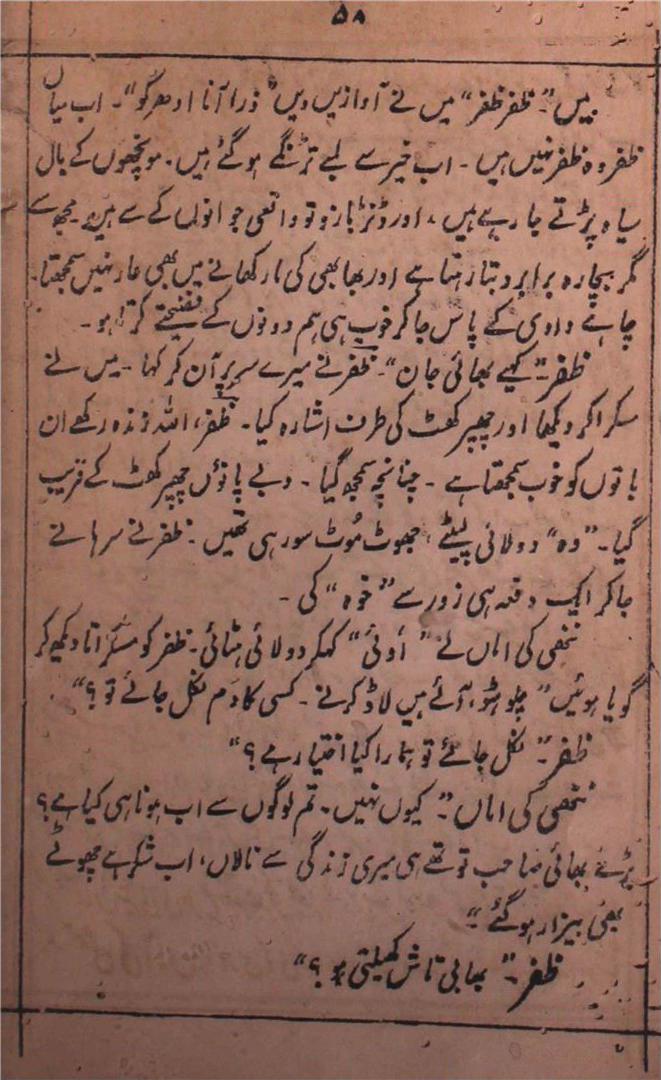 ۵۸
میں"۔ ظفر ظفر" میں نے آوازیں دیں" ذرا آنا ادھر گو"۔ اب میاں
ظفر وہ ظفر نہیں ہیں۔ اب خیر سے لمبے تڑنگے ہو گئے ہیں۔ مونچھوں کے بال
سیاہ پڑتے جا رہے ہیں، اور ڈنڑ بازو تو واقعی جوانوں کے سے ہیں۔ مجھ سے
مگر بیچارہ برابر دبتا رہتا ہے اور بھابھی کی مار کھانے میں بھی عار نہیں سمجھتا۔
چاہے دادی کے پاس جا کر خوب ہی ہم دونوں کے فضیحتے کرتا ہو۔
ظفر۔" کہیے بھائی جان"۔ ظفر نے میرے سر پر آن کر کہا۔ میں نے
مسکرا کر دیکھا اور چھپر کھٹ کی طرف اشارہ کیا۔ ظفر، اللہ زندہ رکھے ان
باتوں کو خوب سمجھتا ہے۔ چنانچہ سمجھ گیا۔ دبے پاؤں چھپر کھٹ کے قریب
گیا۔ "وہ" دولائی لپیٹے، جھوٹ مُوٹ سو رہی تھیں۔ ظفر نے سرہانے
جا کر ایک دفعہ ہی زور سے "خوہ" کی۔
ننھی کی اماں نے "اُوئی" کہکر دولائی ہٹائی۔ ظفر کو مسکراتا دیکھ کر
گویا ہوئیں" چلو ہٹو، آئے ہیں لاڈ کرنے۔ کسی کا دَم نکل جائے تو؟"
ظفر۔" نکل جائے تو ہمارا کیا اختیار ہے؟"
ننھی کی اماں"۔ کیوں نہیں۔ تم لوگوں سے اب ہونا ہی کیا ہے؟
بڑے بھائی صاحب تو تھے ہی میری زندگی سے نالاں، اب شکر ہے چھوٹے
بھی بیزار ہو گئے"۔
ظفر۔" بھابی تاش کھیلتی ہو؟"